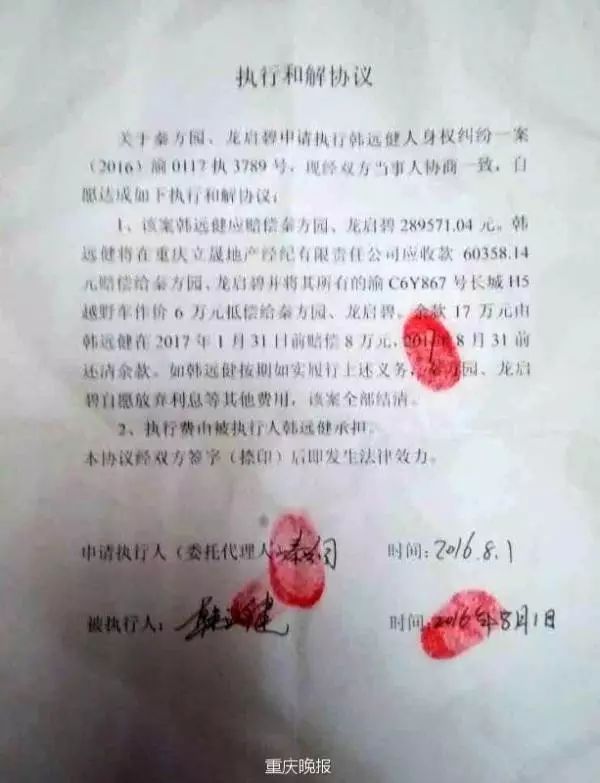 执行和解协议
关于秦方园、龙启碧申请执行韩远健人身权纠纷一案
(2016)渝0117执3789号,现经双方当事人协商一致,自
愿达成如下执行和解协议:
1、该案韩远健应赔偿秦方园、龙启碧289571.04元。韩
远健将在重庆立晟地产经纪有限责任公司应收款60358.14
元赔偿给秦方园、龙启碧并将其所有的渝C6Y867号长城H5
越野车作价6万元抵偿给秦方园、龙启碧。余款17万元由
韩远健在2017年1月31日前赔偿8万元,2017年8月31前
还清余款。如韩远健按期如实履行上述义务,秦方园、龙启
碧自愿放弃利息等其他费用,该案全部结清。
2、执行费由被执行人韩远健承担。
本协议经双方签字(捺印)后即发生法律效力。
申请执行人(委托代理人 时间:2016.8.1
被执行人:韩远健 时间:2016年8月1日
重庆晚报